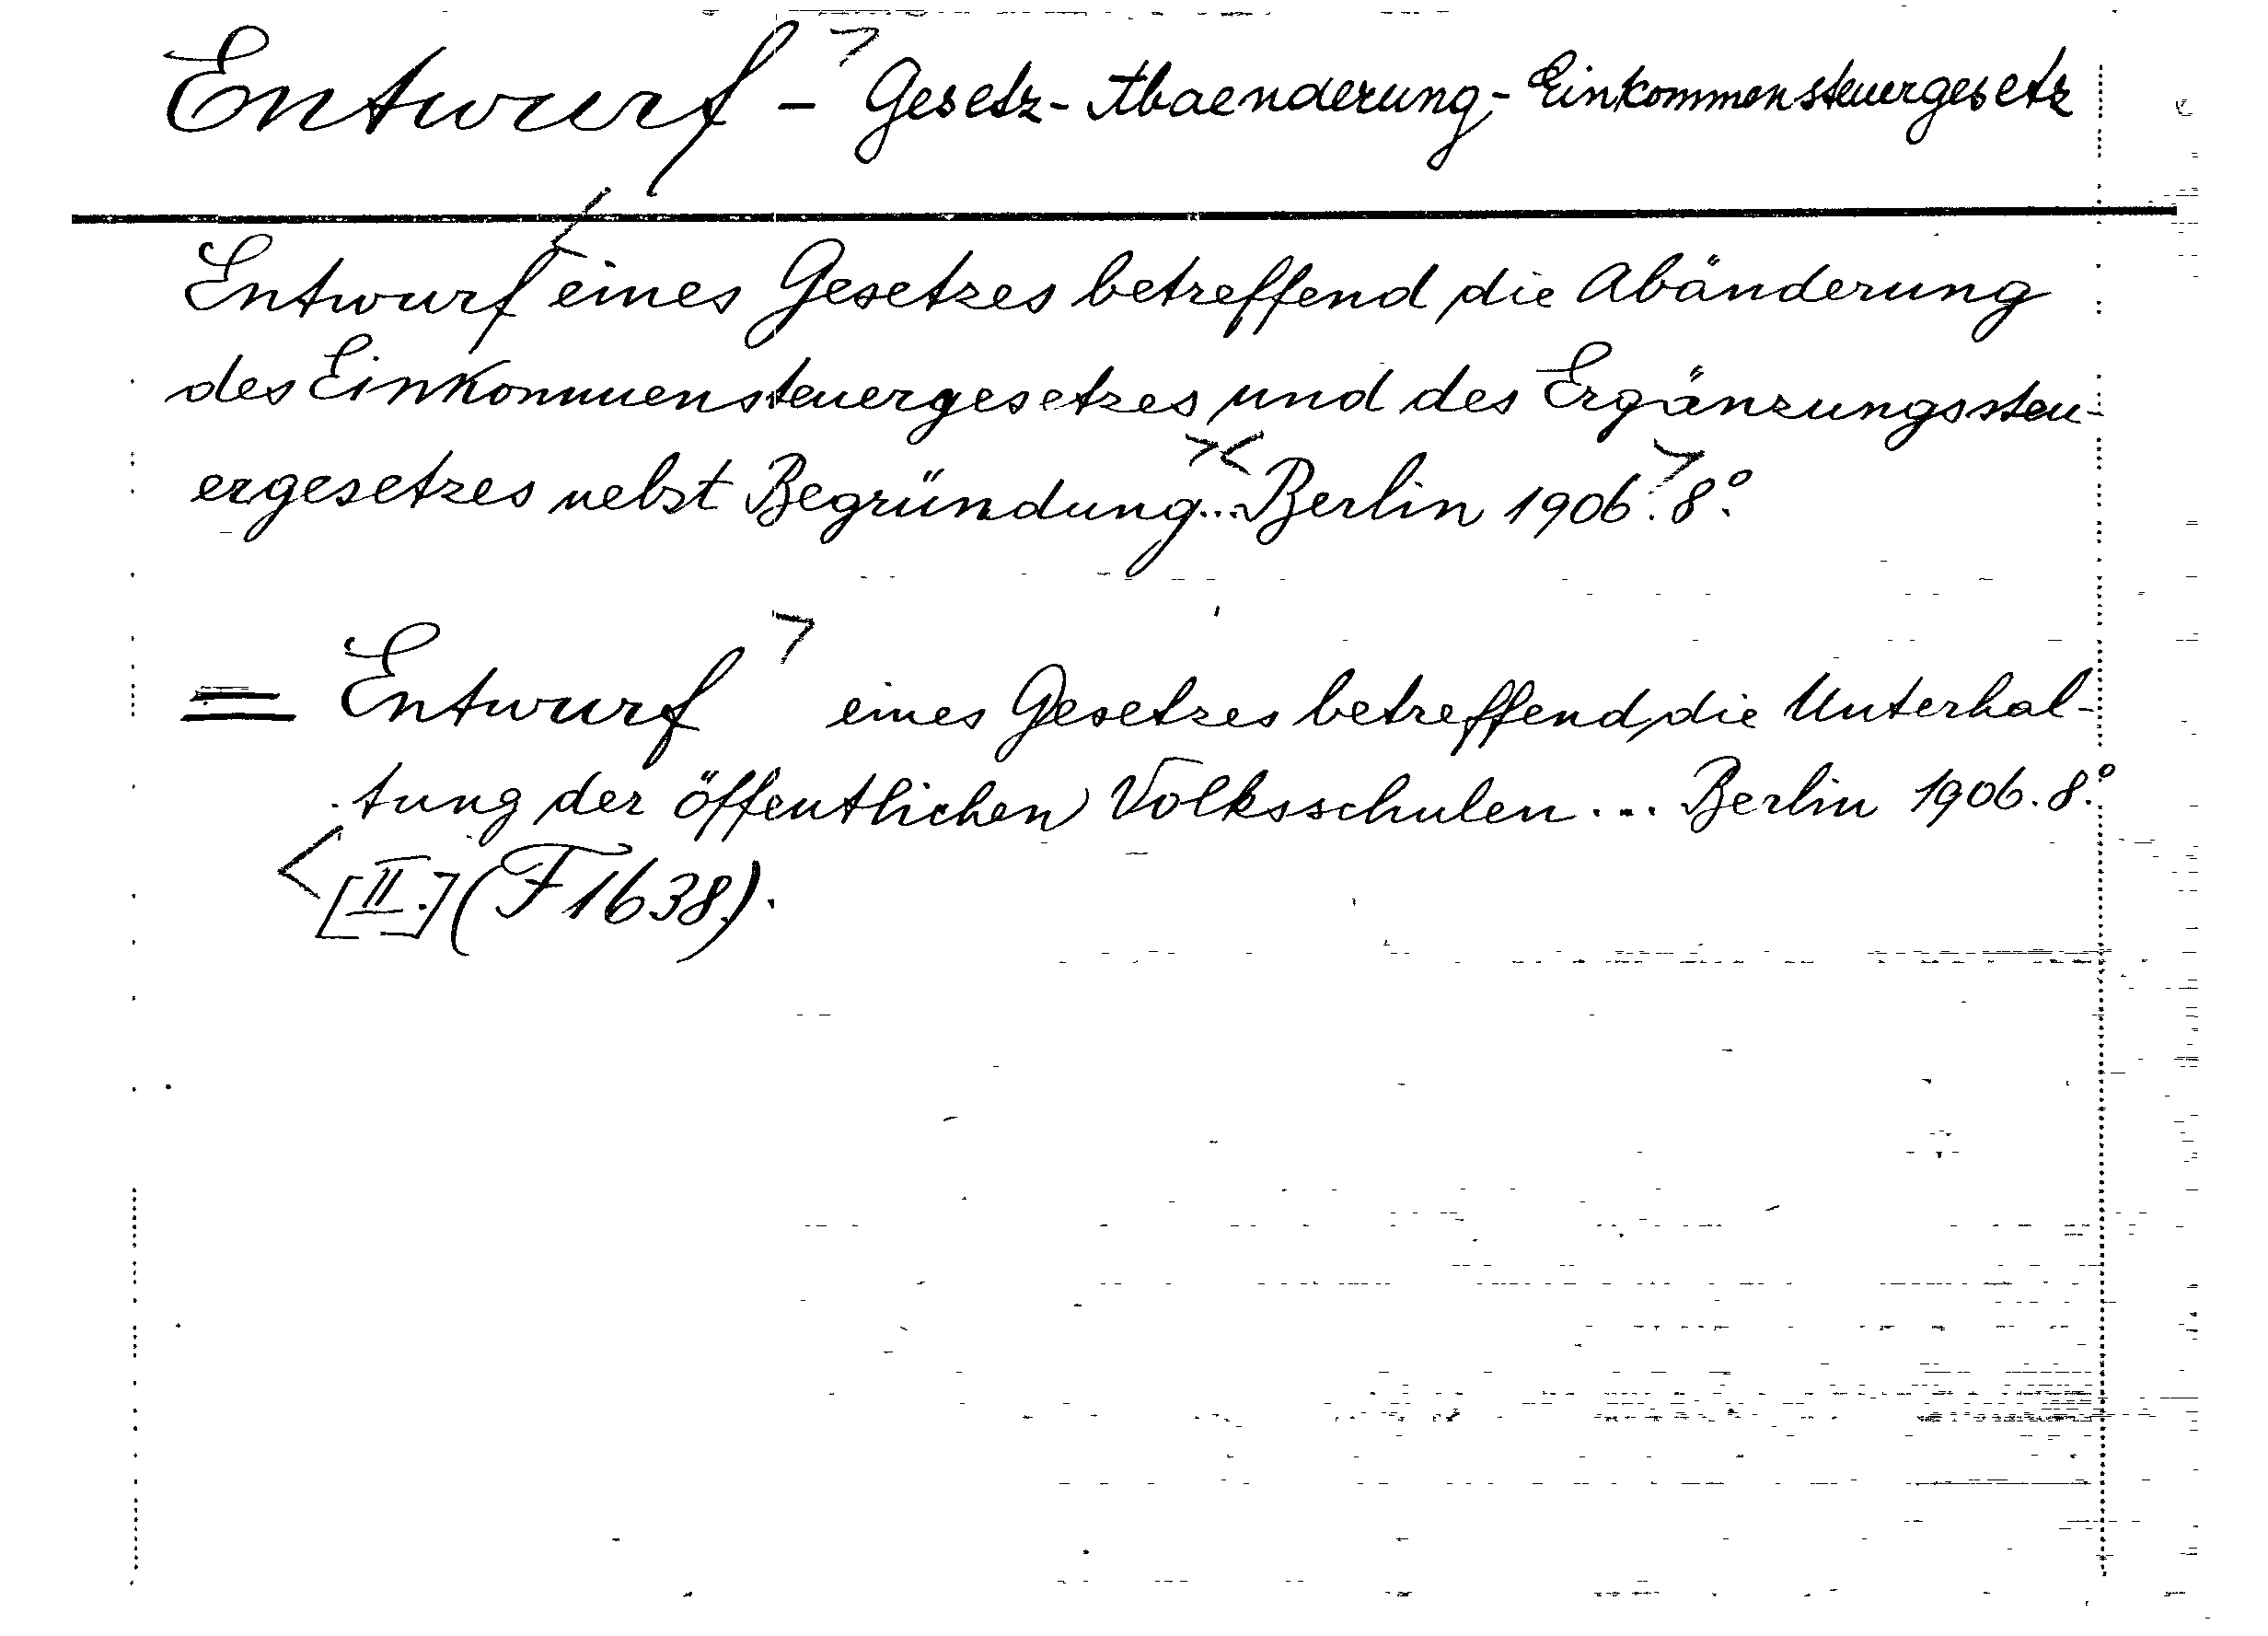 Entwurf - Gesetz-Abaenderung-Einkommensteuergesetz
Entwurf eines Gesetzes betreffend die Abänderung
des Einkommensteuergesetzes und des Ergänzungssteu-
ergesetzes nebst Begründung... Berlin 1906. 8°.
= Entwurf eines Gesetzes betreffend die Unterhal-
tung der öffentlichen Volksschulen... Berlin 1906. 8°.
[II.] (F 1638).